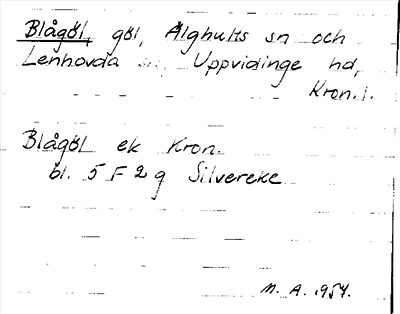 Blågöl, göl, Älghults sn och
Lenhovda sn, Uppvidinge hd,
Kron. l.
Blågöl ek Kron.
bl. 5 F 2 g Silvereke
M. A. 1954.